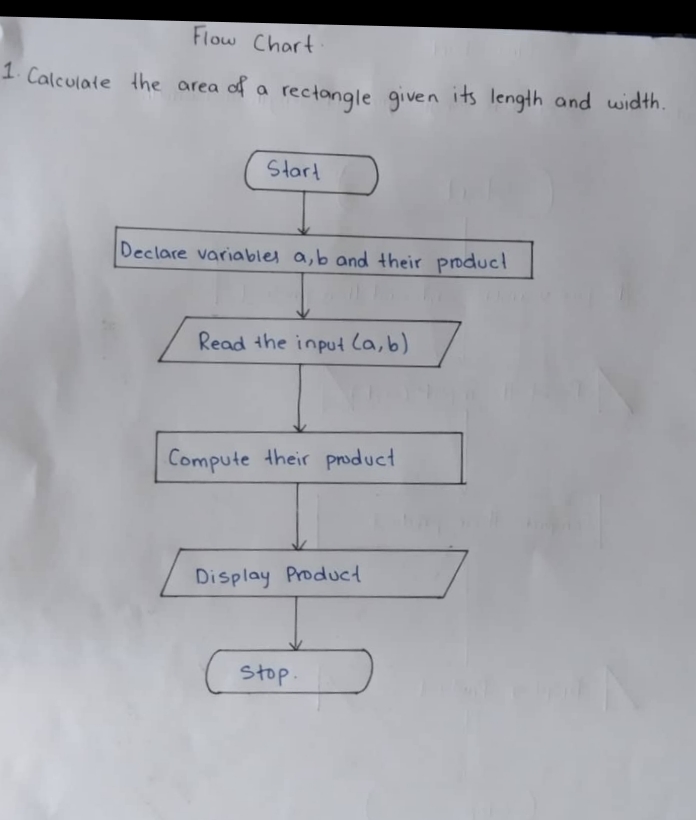 Flow Chart.
1. Calculate the area of a rectangle given its length and width.
Start
Declare variables a,b and their product
Read the input (a,b)
Compute their product
Display Product
Stop.